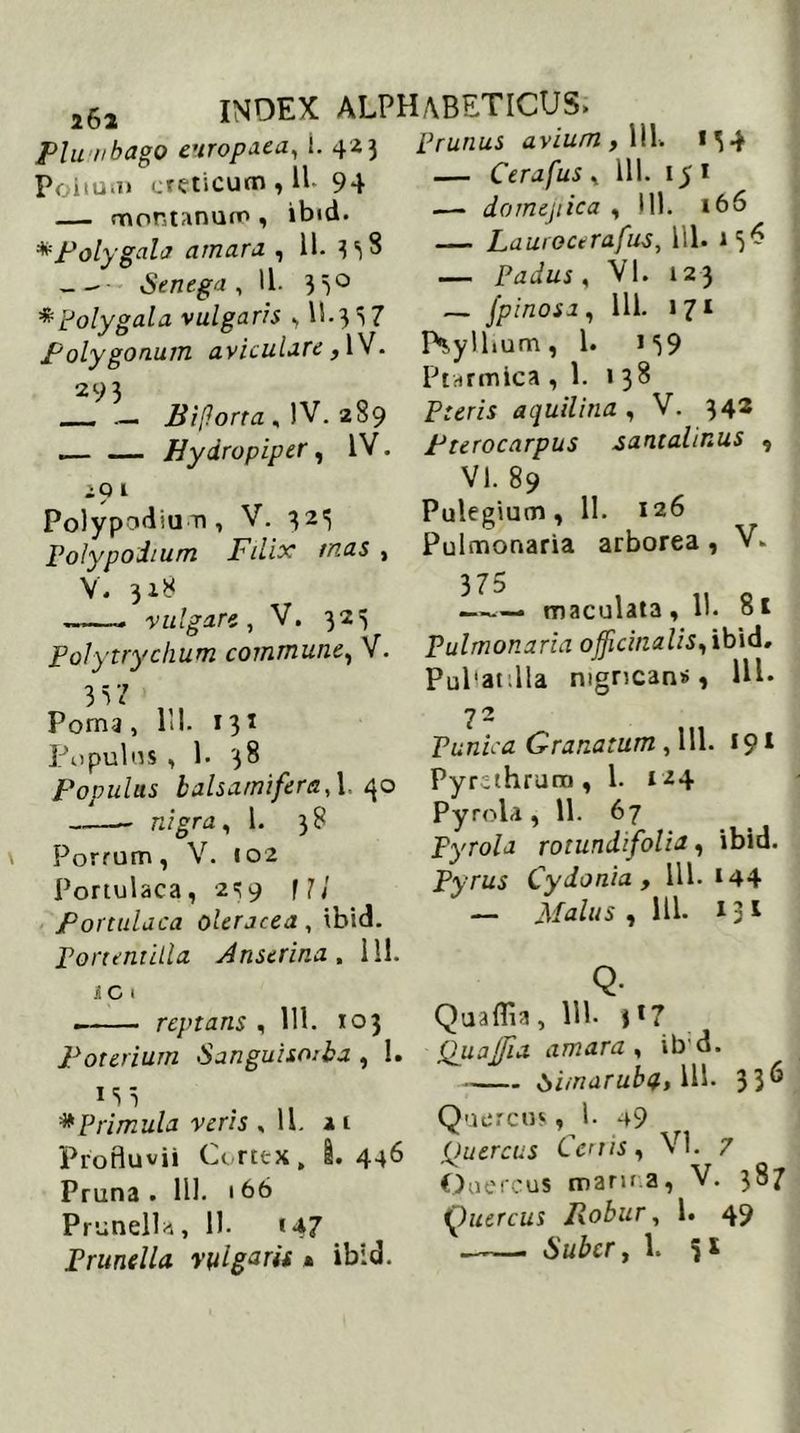 262 INDEX ALPHABETICUS.
Plumbago europaea, I. 423
Polium creticum, II. 94
— montanum, ibid.
*Polygala amara, II. 358
— Senega, II. 350
*Polygala vulgaris, II. 357
Polygonum aviculare, IV.
293
— — Biſtorta, IV. 289
— — Hydropiper, IV.
291
Polypodium, V. 325
Polypodium Filix mas,
V. 318
— vulgare, V. 325
Polytrychum commune, V.
357
Poma, III. 131
Populus, I. 38
Populus balsamifera, I. 40
— nigra, I. 38
Porrum, V. 102
Portulaca, 259
Portulaca Oleracea, ibid.
Portentilla Anserina, III.
— reptans, III. 103
Poterium Sanguisorba, I.
155
*Primula veris, II. 21
Profluvii Cortex, I. 446
Pruna. III. 166
Prunella, II. 147
Prunella vulgaris, ibid.
Prunus avium, III. 154
— Ceraſus, III. 151
— domeſtica, III. 166
— Lauroceraſus, III. 156
— Padus, VI. 123
— ſpinosa, III. 171
Psyllium, I. 159
Ptarmica, I. 138
Pteris aquilina, V. 342
Pterocarpus santalinus,
VI. 89
Pulegium, II. 126
Pulmonaria arborea, V.
375
— maculata, II. 81
Pulmonaria officinalis, ibid.
Pulsatilla nigricans, III.
72
Punica Granatum, III. 191
Pyrethrum, I. 124
Pyrola, II. 67
Pyrola rotundifolia, ibid.
Pyrus Cydonia, III. 144
— Malus, III. 131
Q.
Quaſſia, III. 317
Quaſſia amara, ibid.
— Simaruba, III. 336
Quercus, I. 49
Quercus Cerris, VI. 7
Quercus marina, V. 387
Quercus Robur, I. 49
— Suber, I. 51